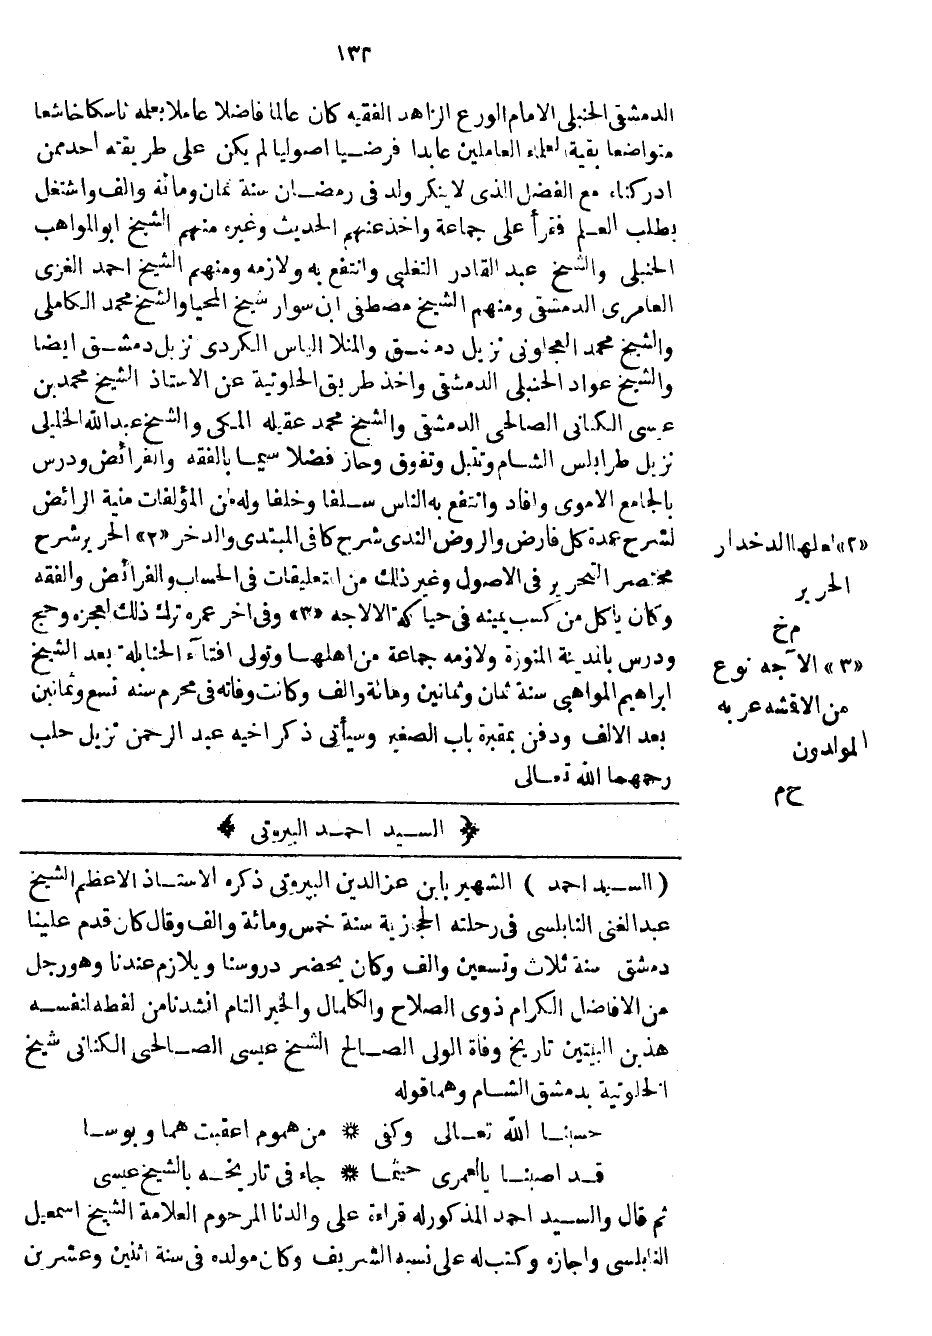 ١٣٢
الدمشقى الحنبلى الامام الورع الزاهد الفقيه كان عالما فاضلا عاملا بعلمه ناسكا خاشعا
متواضعا بقية العلماء العاملين عابدا فرضيا اصوليا لم يكن على طريقته أحد ممن
ادركناه مع الفضل الذى لا ينكر ولد فى رمضان سنة ثمان ومائة والف واشتغل
بطلب العلم فقرأ على جماعة واخذ عنهم الحديث وغيره منهم الشيخ ابو المواهب
الحنبلى والشيخ عبد القادر التغلبى وانتفع به ولازمه ومنهم الشيخ احمد الغزى
العامرى الدمشقى ومنهم الشيخ مصطفى ابن سوار شيخ المحيا والشيخ محمد الكاملى
والشيخ محمد العجلونى نزيل دمشق والمنلا الياس الكردى نزيل دمشق ايضا
والشيخ عواد الحنبلى الدمشقى واخذ طريق الخلوتية عن الاستاذ الشيخ محمد بن
عيسى الكنانى الصالحى الدمشقى والشيخ محمد عقيله المكى والشيخ عبد الله الخليلى
نزيل طرابلس الشام وتنبل وتفوق وحاز فضلا سيما بالفقه والفرائض ودرس
بالجامع الاموى وافاد وانتفع به الناس سلفا وخلفا وله من المؤلفات منية الرائض
لشرح عمدة كل فارض والروض الندى شرح كافى المبتدى والدخر «٢» الحرير شرح
مختصر التحرير فى الاصول وغير ذلك من التعليقات فى الحساب والفرائض والفقه
وكان يأكل من كسب يمينه فى حياكة الالاجه «٣» وفى اخر عمره ترك ذلك لعجزه وحج
ودرس بالمدينة المنورة ولازمه جماعة من اهلها وتولى افتاء الحنابلة بعد الشيخ
ابراهيم المواهبى سنة ثمان وثمانين ومائة والف وكانت وفاته فى محرم سنه تسع وثمانين
بعد الالف ودفن بمقبرة باب الصغير وسيأتى ذكر اخيه عبد الرحمن نزيل حلب
رحمهما الله تعالى
«٢» لعلها الدخدار
الحرير
م خ
«٣» الآجه نوع
من الاقشه عربه
المولدون
ح م
﴿ السيد احمد البيروتى ﴾
( السيد احمد ) الشهير بابن عز الدين البيروتى ذكره الاستاذ الاعظم الشيخ
عبد الغنى النابلسى فى رحلته الحجازية سنة خمس ومائة والف وقال كان قدم علينا
دمشق سنة ثلاث وتسعين والف وكان يحضر دروسنا ويلازم عندنا وهو رجل
من الافاضل الكرام ذوى الصلاح والكمال والخير التام انشدنا من لفظه لنفسه
هذين البيتين تاريخ وفاة الولى الصالح الشيخ عيسى الصالحى الكنانى شيخ
الخلوتية بدمشق الشام وهما قوله
حسبنا الله تعالى وكفى ۞ من هموم اعقبت هما وبوسا
قد اصبنا بالعمرى حيثما ۞ جاء فى تاريخه بالشيخ عيسى
ثم قال والسيد احمد المذكور له قراءة على والدنا المرحوم العلامة الشيخ اسمعيل
النابلسى واجازه وكتب له على نسبه الشريف وكان مولده فى سنة اثنين وعشرين